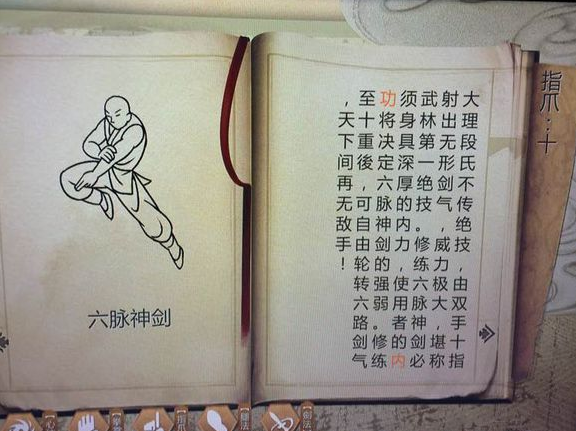 指爪：十
大理段氏不传绝技，由双手十指
射出无形剑气，威力极大，堪称
武林第一绝技。修练六脉神剑必
须身具深厚的内力，使用者的内
功将决定六脉神剑的强弱。修练
至十重後，可自由轮转六路剑气
，天下间再无敌手！
六脉神剑